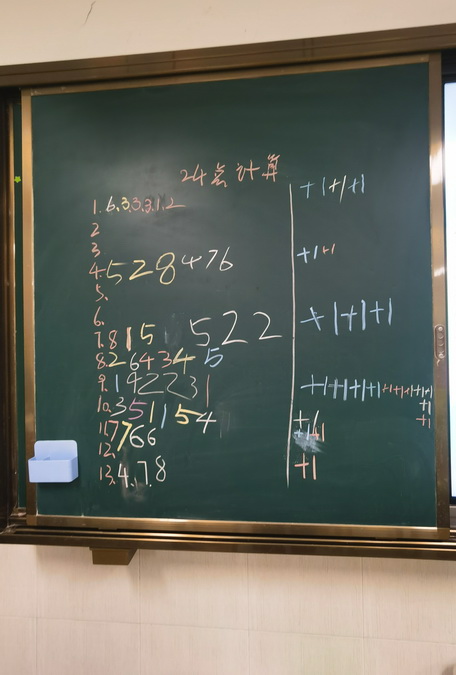 24点计算
1.6.3.3.3.1.2
2
3
4.528476
5.
6.
7.815 522
8.264345
9.1922231
10.351154
11.7766
12.
13.4.7.8
+1+1+1
+1+1
+1+1+1
+1
+1
+1